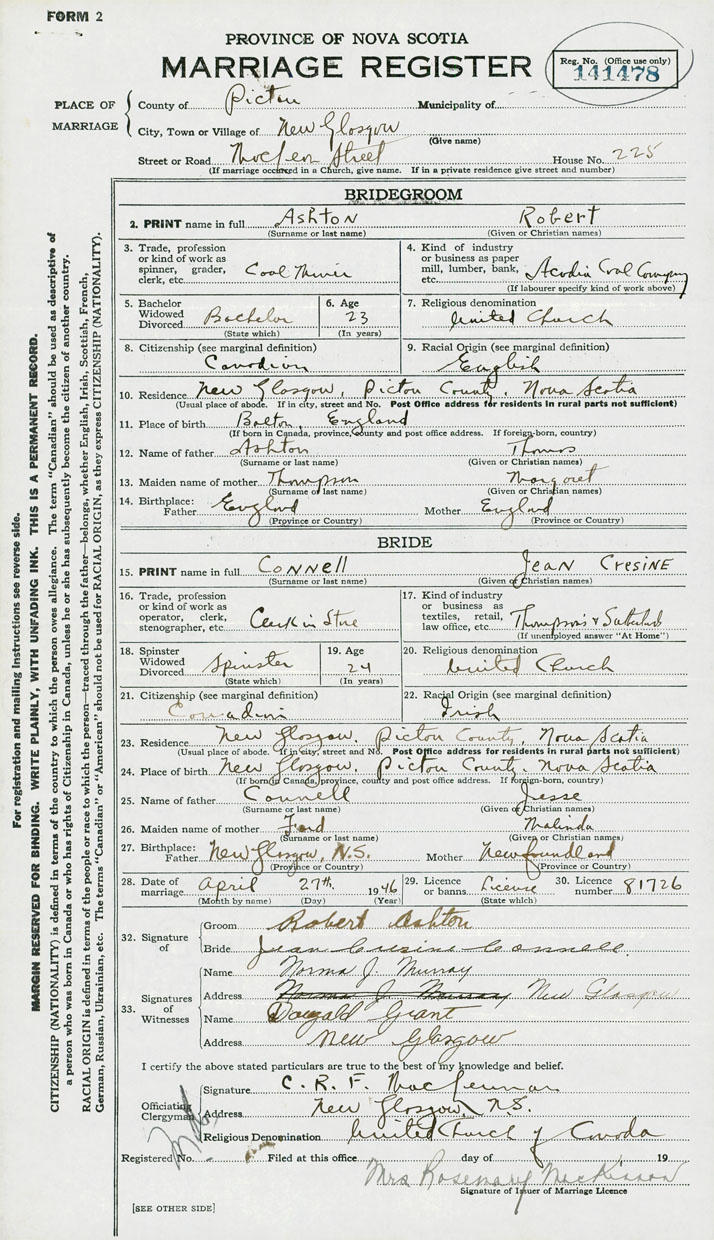 FORM 2
PROVINCE OF NOVA SCOTIA
MARRIAGE REGISTER
Reg. No. (Office use only)
141478
PLACE OF MARRIAGE
County of Pictou Municipality of
City, Town or Village of New Glasgow
(Give name)
Street or Road MacLean Street House No. 225
(If marriage occurred in a Church, give name. If in a private residence give street and number)
BRIDEGROOM
2. PRINT name in full Ashton Robert
(Surname or last name) (Given or Christian names)
3. Trade, profession or kind of work as spinner, grader, clerk, etc. Coal Miner
4. Kind of industry or business as paper mill, lumber, bank, etc. Acadia Coal Company
(If labourer specify kind of work above)
5. Bachelor Widowed Divorced Bachelor
(State which)
6. Age 23
(In years)
7. Religious denomination
United Church
8. Citizenship (see marginal definition)
Canadian
9. Racial Origin (see marginal definition)
English
10. Residence New Glasgow, Pictou County, Nova Scotia
(Usual place of abode. If in city, street and No. Post Office address for residents in rural parts not sufficient)
11. Place of birth Bolton, England
(If born in Canada, province, county and post office address. If foreign-born, country)
12. Name of father Ashton Thomas
(Surname or last name) (Given or Christian names)
13. Maiden name of mother Thompson Margaret
(Surname or last name) (Given or Christian names)
14. Birthplace: Father England Mother England
(Province or Country) (Province or Country)
BRIDE
15. PRINT name in full Connell Jean Cresine
(Surname or last name) (Given or Christian names)
16. Trade, profession or kind of work as operator, clerk, stenographer, etc. Clerk in Store
17. Kind of industry or business as textiles, retail, law office, etc. Thompson's &
(If unemployed answer "At Home")
18. Spinster Widowed Divorced Spinster
(State which)
19. Age 24
(In years)
20. Religious denomination
United Church
21. Citizenship (see marginal definition)
Canadian
22. Racial Origin (see marginal definition)
Irish
23. Residence New Glasgow, Pictou County, Nova Scotia
(Usual place of abode. If in city, street and No. Post Office address for residents in rural parts not sufficient)
24. Place of birth New Glasgow, Pictou County, Nova Scotia
(If born in Canada, province, county and post office address. If foreign-born, country)
25. Name of father Connell Jesse
(Surname or last name) (Given or Christian names)
26. Maiden name of mother Ford Malinda
(Surname or last name) (Given or Christian names)
27. Birthplace: Father New Glasgow, N.S. Mother Newfoundland
(Province or Country) (Province or Country)
28. Date of marriage April 27th, 1946
(Month by name) (Day) (Year)
29. Licence or banns License
(State which)
30. Licence number 81726
32. Signature of
Groom Robert Ashton
Bride Jean Connell
33. Signatures of Witnesses
Name Norma J. Murray
Address Norma J. Murray New Glasgow
Name Dougald Grant
Address New Glasgow
I certify the above stated particulars are true to the best of my knowledge and belief.
Officiating Clergyman
Signature C. R. F. MacLennan
Address New Glasgow, N.S.
Religious Denomination United Church of Canada
Registered No. Filed at this office day of 19
Mrs Rosemary MacKinnon
Signature of Issuer of Marriage Licence
[SEE OTHER SIDE]
For registration and mailing instructions see reverse side.
MARGIN RESERVED FOR BINDING. WRITE PLAINLY, WITH UNFADING INK. THIS IS A PERMANENT RECORD.
CITIZENSHIP (NATIONALITY) is defined in terms of the country to which the person owes allegiance. The term "Canadian" should be used as descriptive of
a person who was born in Canada or who has rights of Citizenship in Canada, unless he or she has subsequently become the citizen of another country.
RACIAL ORIGIN is defined in terms of the people or race to which the person—traced through the father—belongs, whether English, Irish, Scottish, French,
German, Russian, Ukrainian, etc. The terms "Canadian" or "American" should not be used for RACIAL ORIGIN, as they express CITIZENSHIP (NATIONALITY).